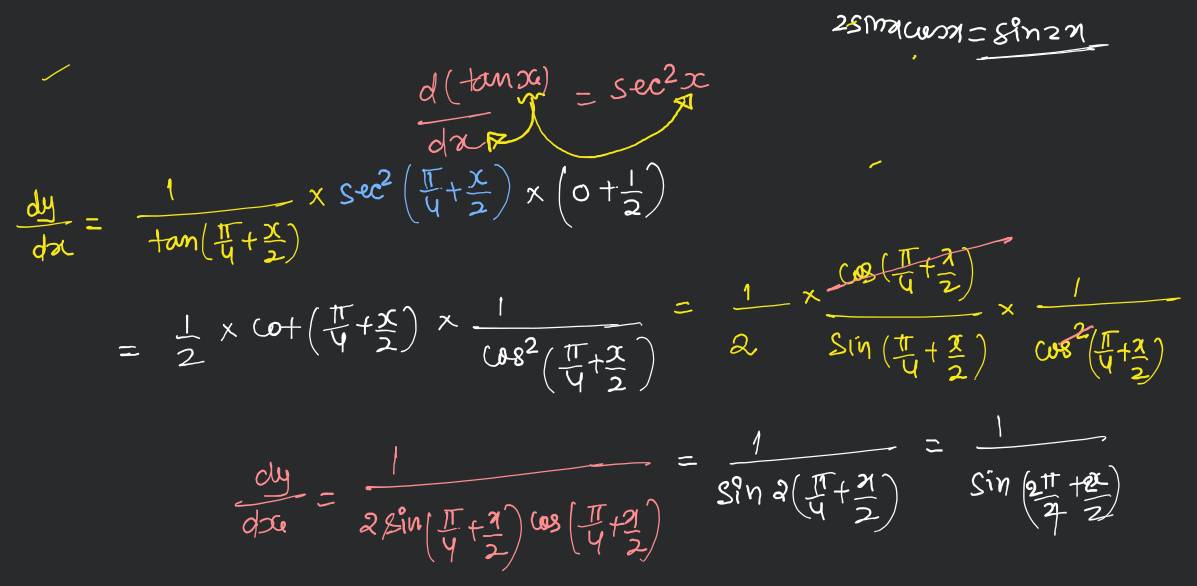 2sinxcosx = sin2x
d(tanx)/dx = sec²x
dy/dx = 1/tan(π/4 + x/2) × sec²(π/4 + x/2) × (0 + 1/2)
= 1/2 × cot(π/4 + x/2) × 1/cos²(π/4 + x/2) = 1/2 × cos(π/4 + x/2)/sin(π/4 + x/2) × 1/cos²(π/4 + x/2)
dy/dx = 1/2sin(π/4 + x/2)cos(π/4 + x/2) = 1/sin2(π/4 + x/2) = 1/sin(2π/4 + 2x/2)